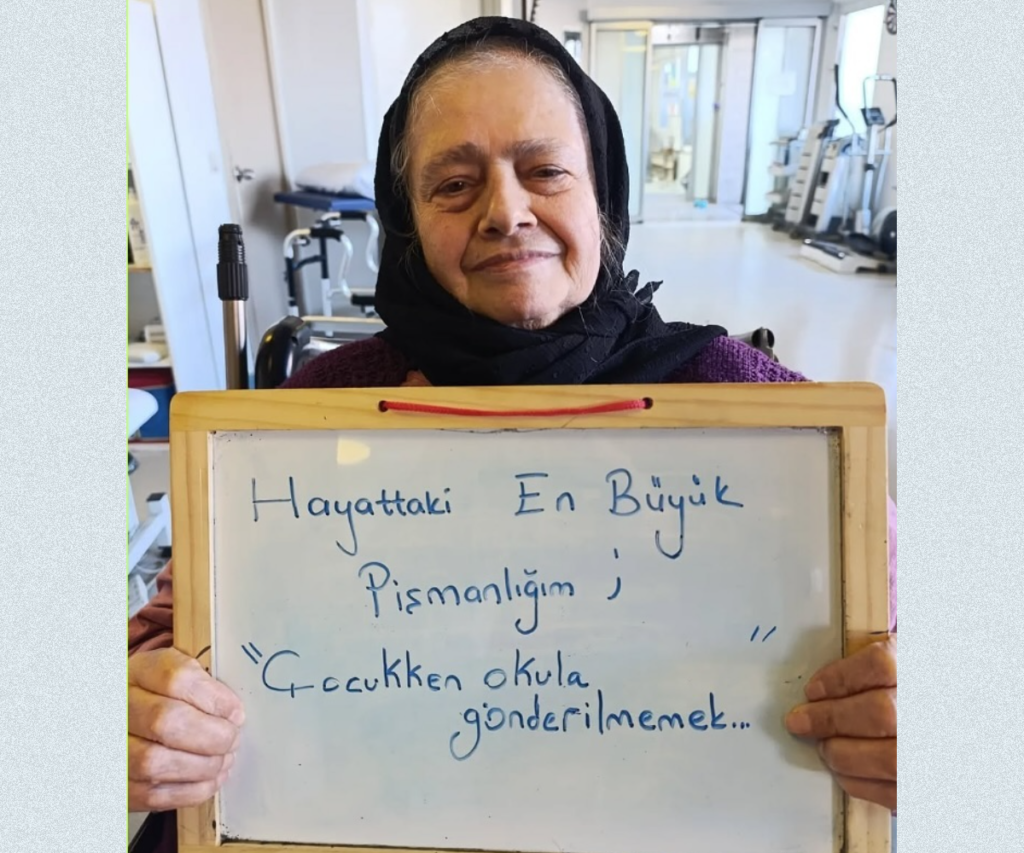 Hayattaki En Büyük
Pişmanlığım ;
"Çocukken okula "
gönderilmemek...